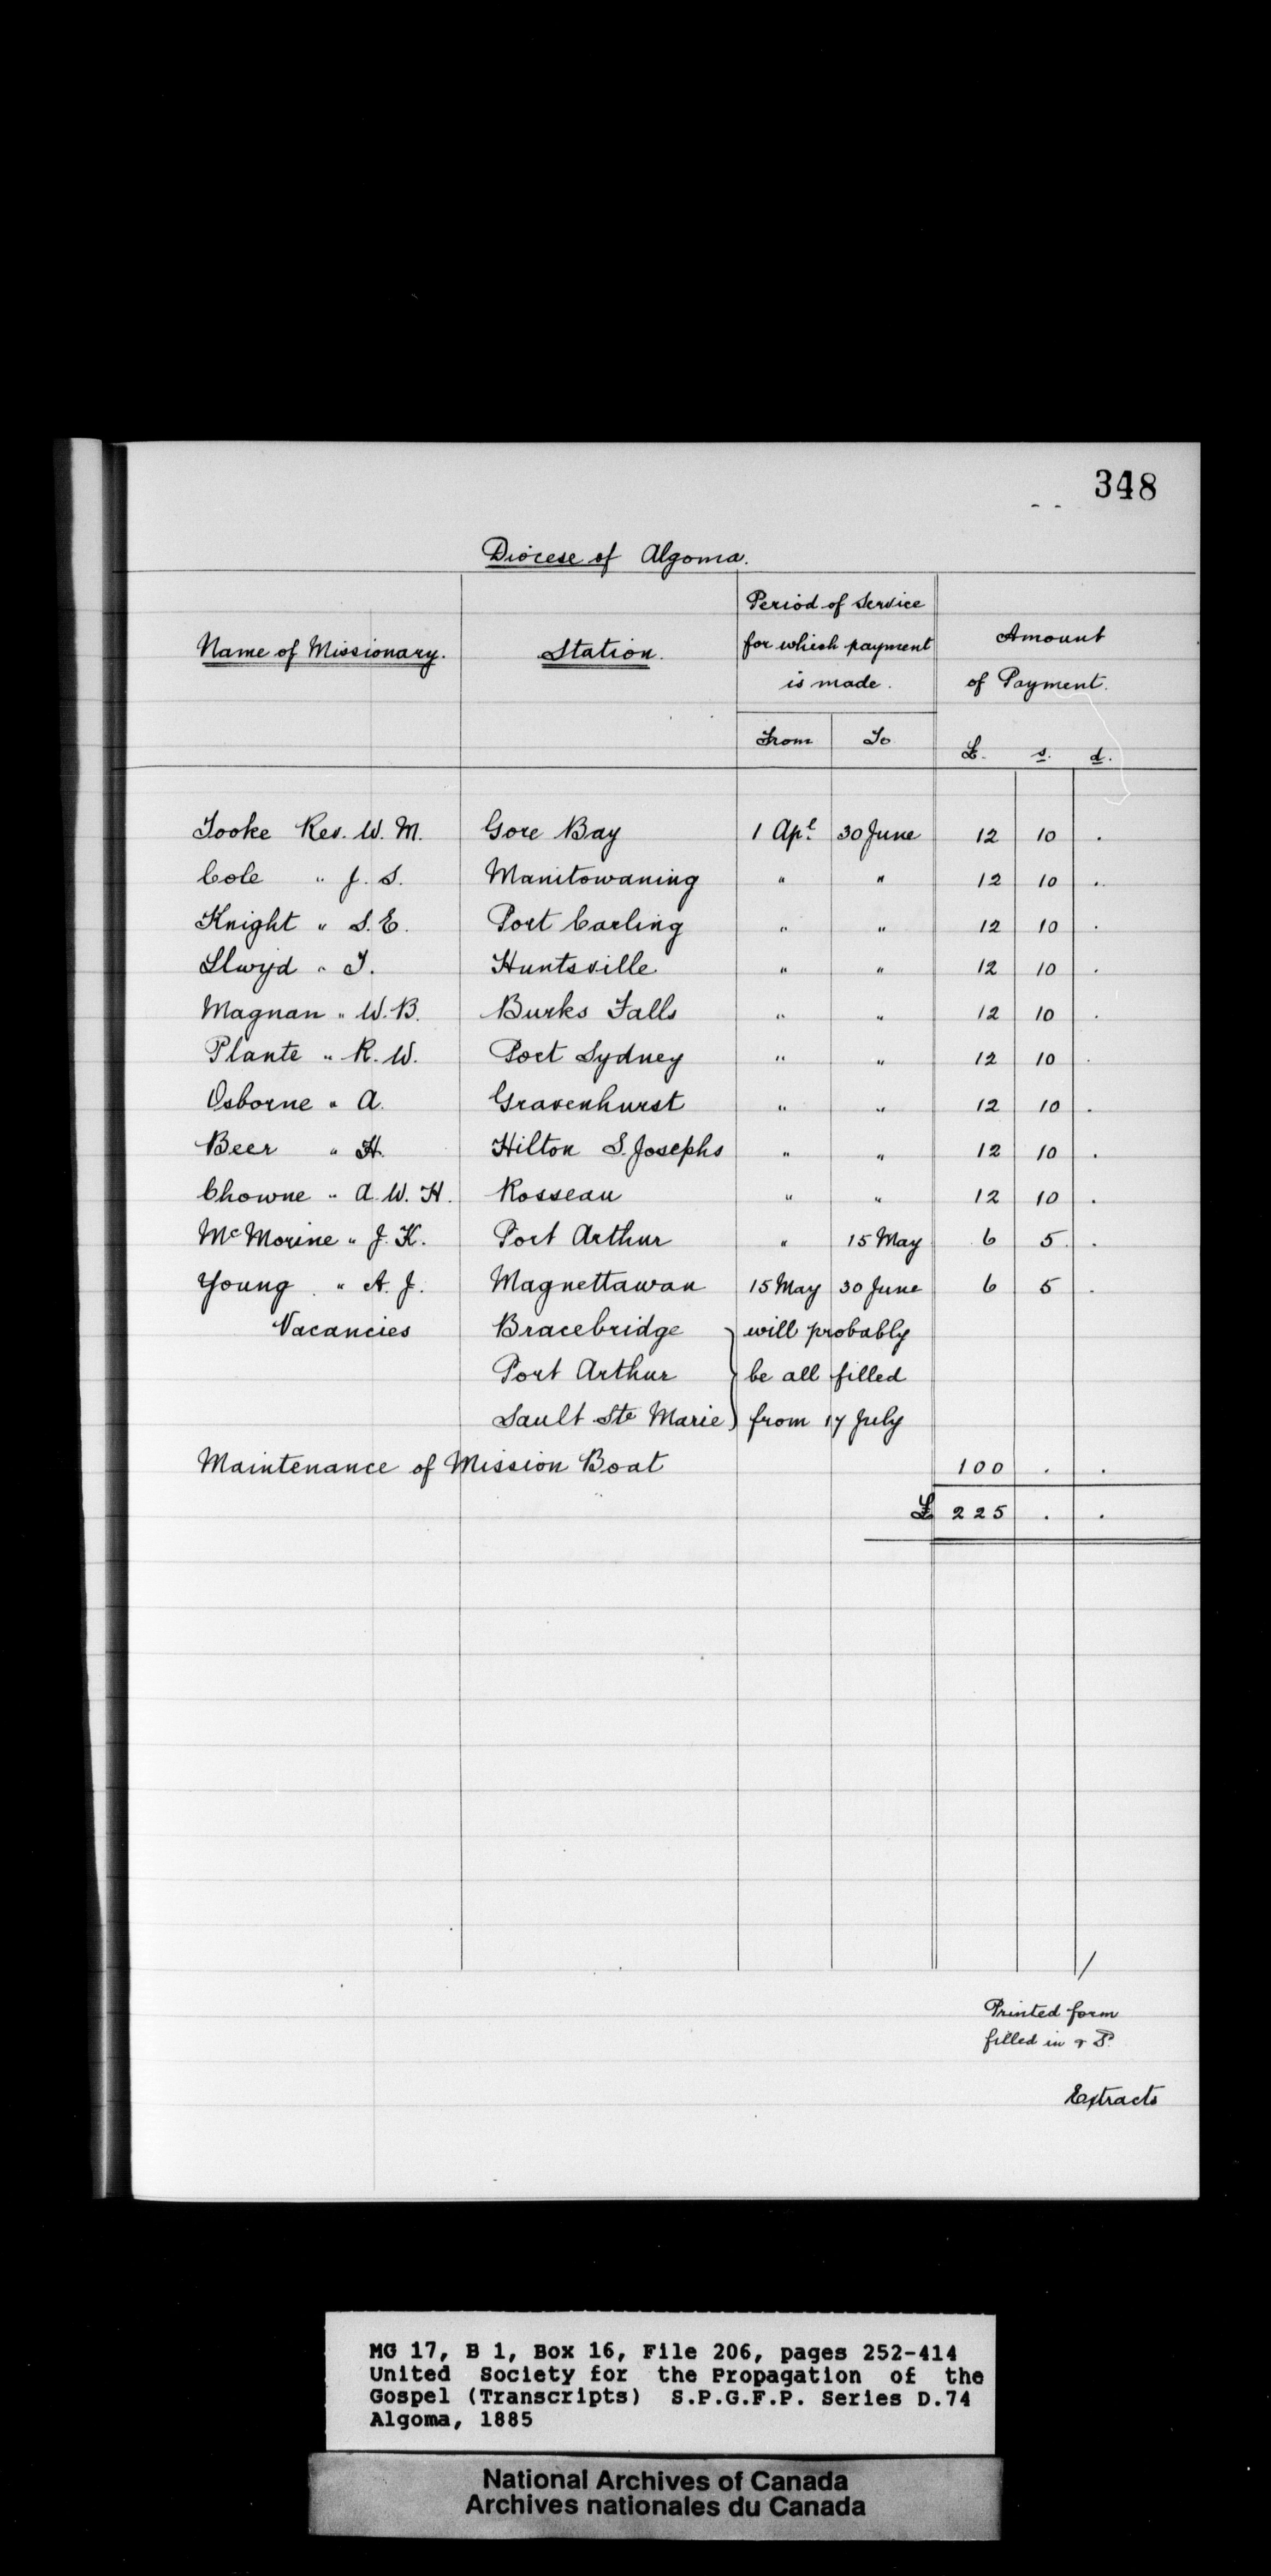 348
Diocese of Algoma.
Name of Missionary. Station. Period of Service for which payment is made. Amount of Payment.
From To £. s. d.
Tooke Rev. W. M. Gore Bay 1 Apl. 30 June 12 10 .
Cole " J. S. Manitowaning " " 12 10 .
Knight " S. E. Port Carling " " 12 10 .
Llwyd " T. Huntsville " " 12 10 .
Magnan " W. B. Burks Falls " " 12 10 .
Plante " R. W. Port Sydney " " 12 10 .
Osborne " A. Gravenhurst " " 12 10 .
Beer " H. Hilton S. Josephs " " 12 10 .
Chowne " A. W. H. Rosseau " " 12 10 .
McMorine " J. K. Port Arthur " 15 May 6 5 .
Young " A. J. Magnettawan 15 May 30 June 6 5 .
Vacancies Bracebridge will probably
Port Arthur be all filled
Sault Ste Marie from 17 July
Maintenance of Mission Boat 100 . .
£ 225 . .
Printed form
filled in & S.
Extracts
MG 17, B 1, Box 16, File 206, pages 252-414
United Society for the Propagation of the
Gospel (Transcripts) S.P.G.F.P. Series D.74
Algoma, 1885
National Archives of Canada
Archives nationales du Canada